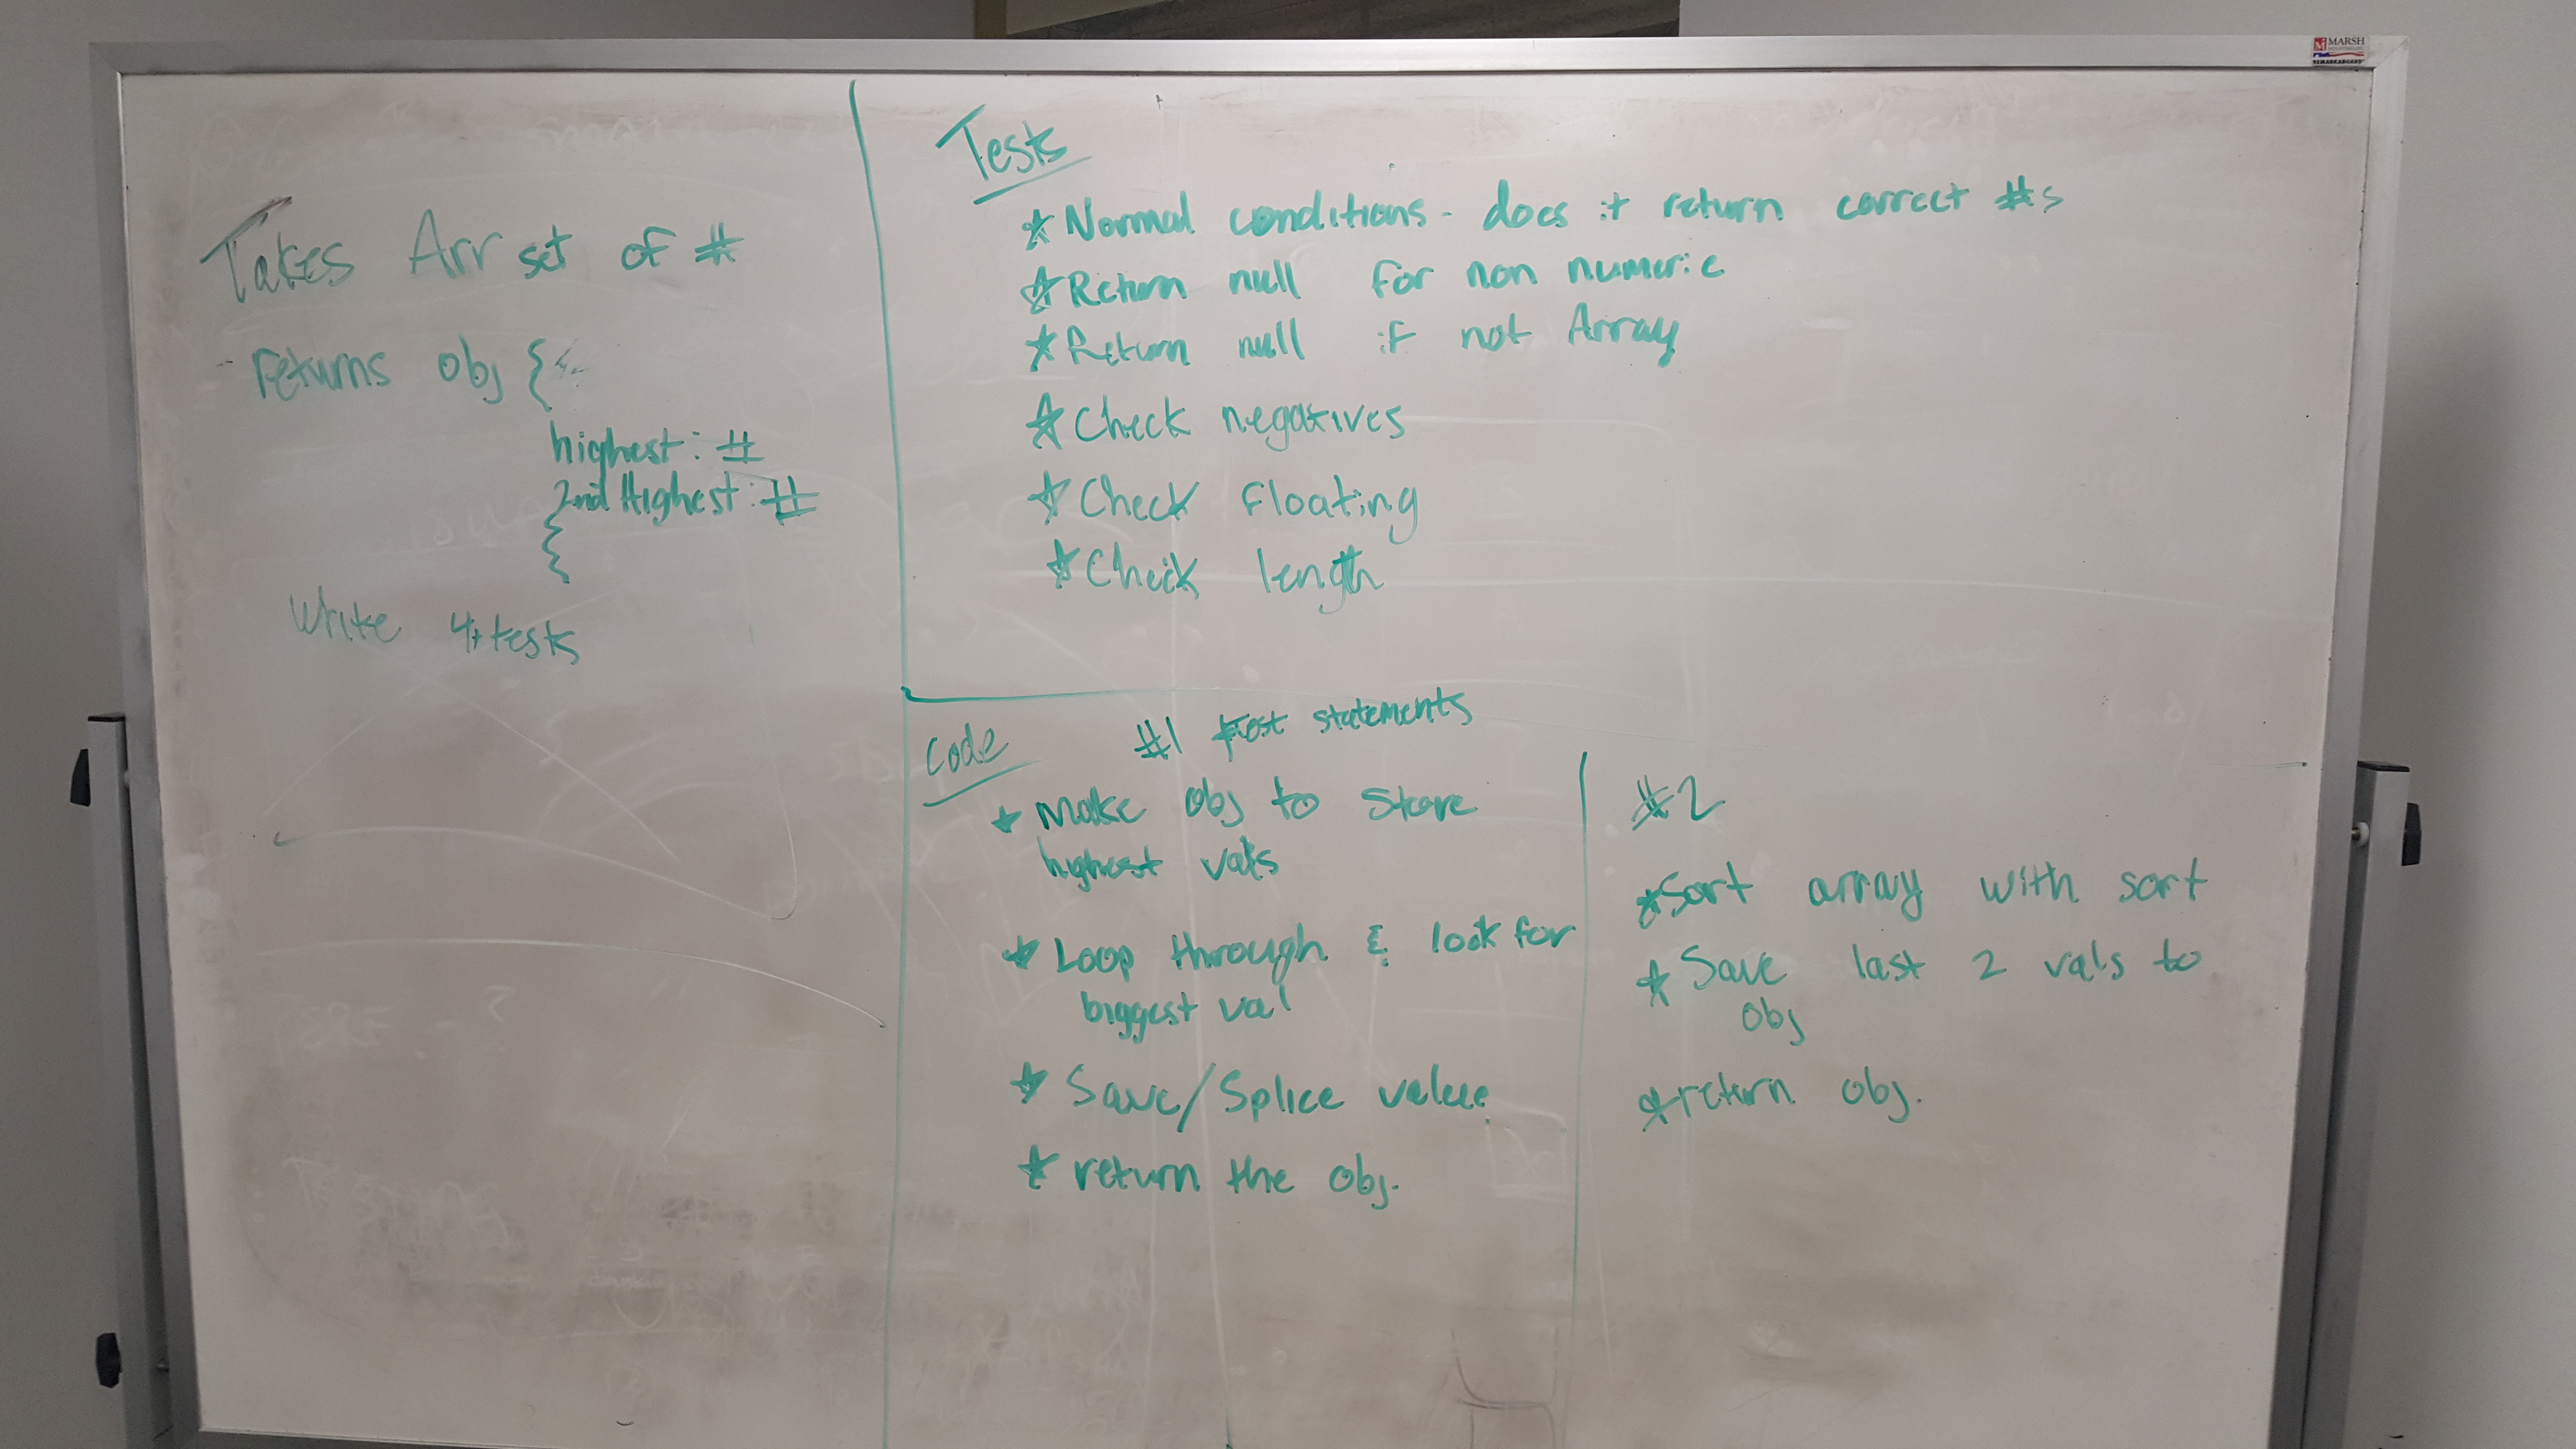 MARSH
Takes Arr set of #
returns obj {
highest: #
2nd Highest: #
Write 4+ tests
Tests
* Normal conditions - does it return correct #s
* Return null for non numeric
* Return null if not Array
* Check negatives
* Check floating
* Check length
Code
#1 test statements
* Make obj to store
highest vals
* Loop through & look for
biggest val
* Save/Splice value
* return the obj.
#2
* Sort array with sort
* Save last 2 vals to
obj
* return obj.